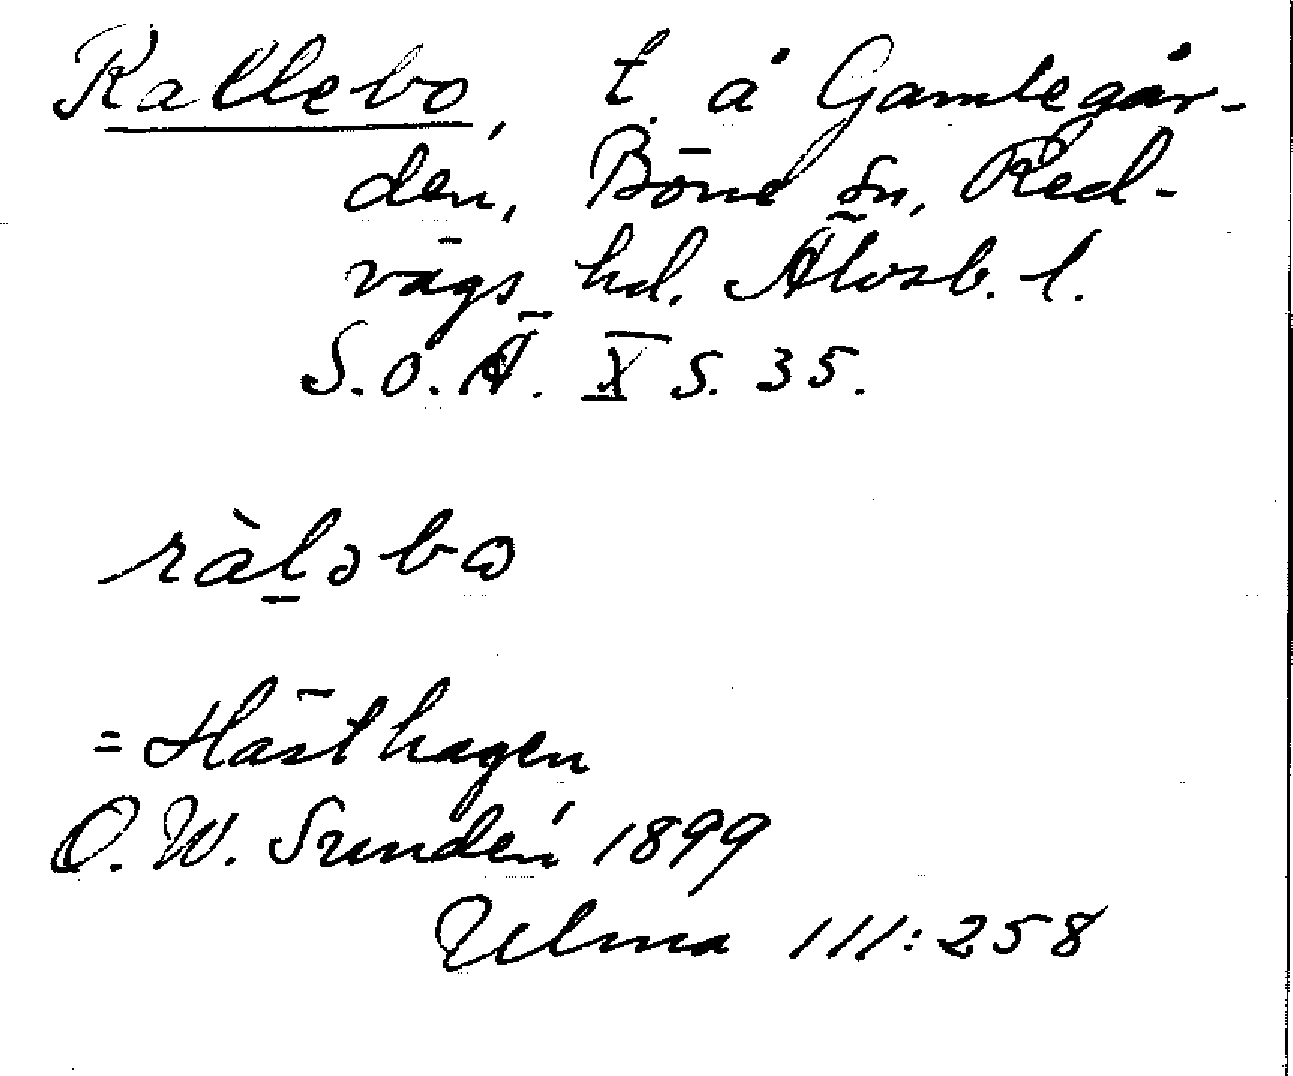 Rallebo, t. å Gamlegår-
den, Böne sn, Red-
vägs hd. Älvsb. l.
S.O.Ä. X s. 35.
ràl̠əbω
= Hästhagen
O. W. Sundén 1899
Ulma 111:258